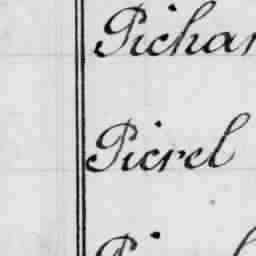 Pichar
Picrel